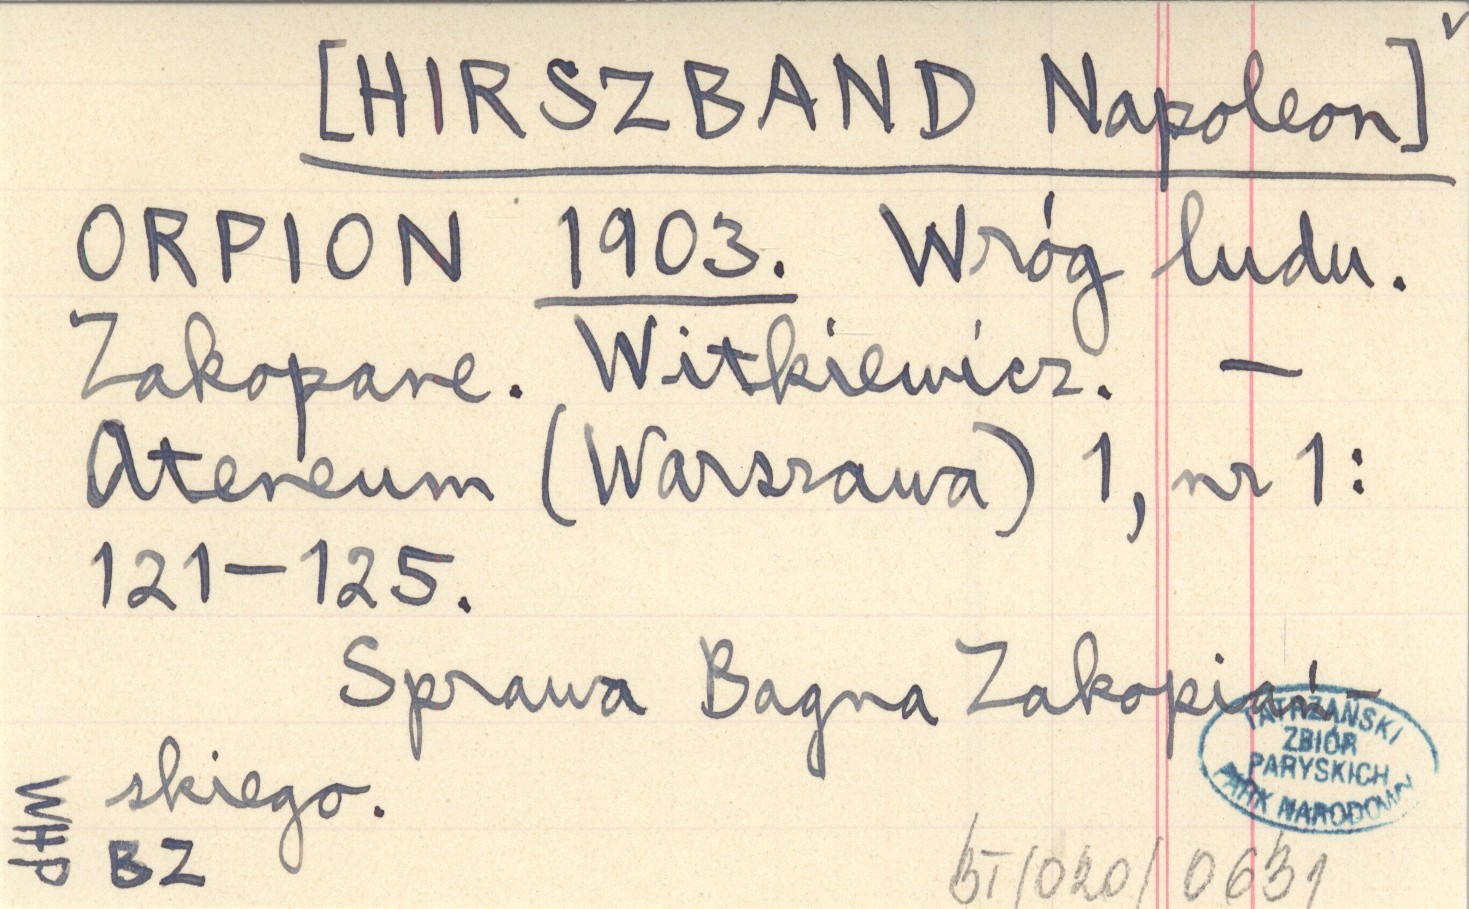 [HIRSZBAND Napoleon] v
ORPION 1903. Wróg ludu.
Zakopane. Witkiewicz. —
Ateneum (Warszawa) 1, nr 1:
121—125.
Sprawa Bagna Zakopiań-
skiego.
WHP
BZ
TATRZAŃSKI
ZBIÓR
PARYSKICH
PARK NARODOWY
BT/020/0631